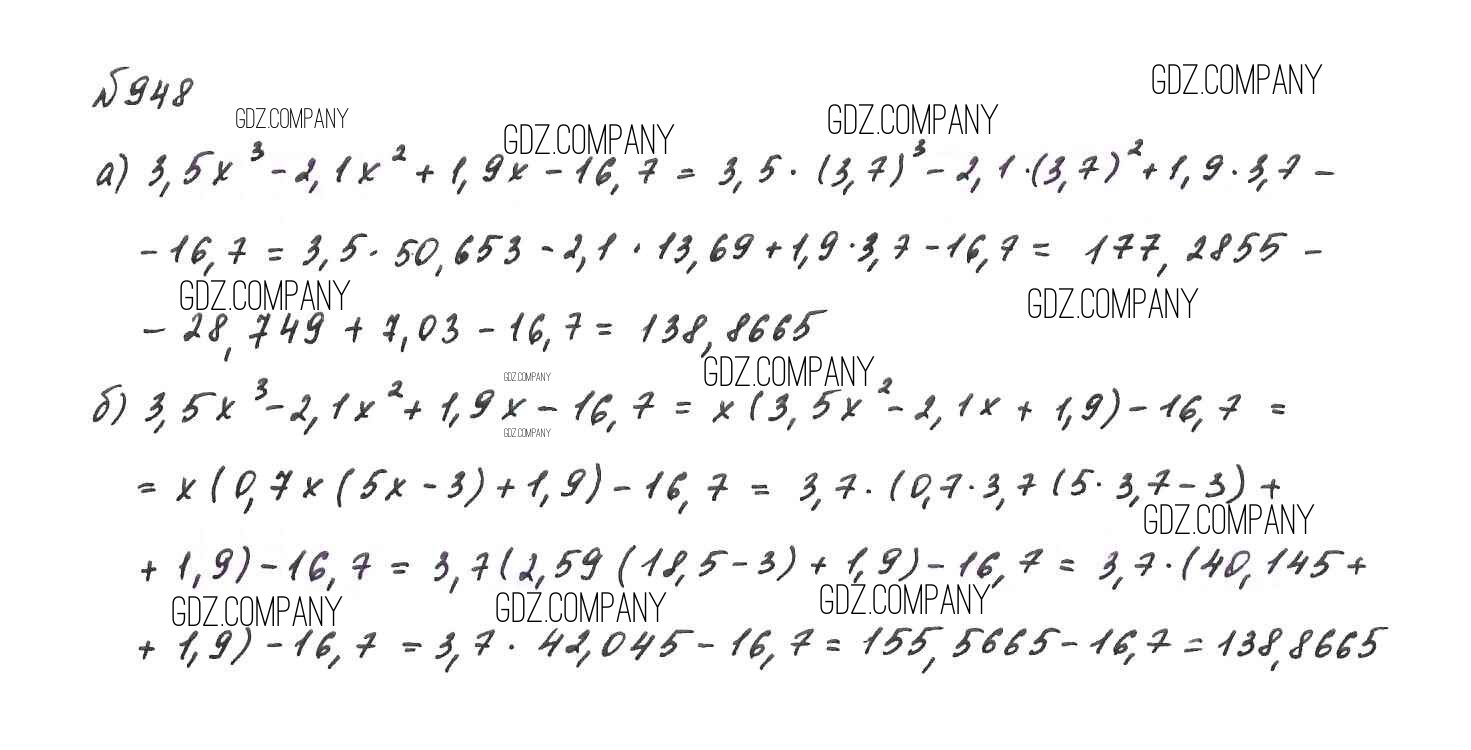 №948
GDZ.COMPANY
GDZ.COMPANY
GDZ.COMPANY
GDZ.COMPANY
а) 3,5x³ - 2,1x² + 1,9x - 16,7 = 3,5 · (3,7)³ - 2,1 · (3,7)² + 1,9 · 3,7 -
- 16,7 = 3,5 · 50,653 - 2,1 · 13,69 + 1,9 · 3,7 - 16,7 = 177,2855 -
GDZ.COMPANY
GDZ.COMPANY
- 28,749 + 7,03 - 16,7 = 138,8665
GDZ.COMPANY
GDZ.COMPANY
б) 3,5x³ - 2,1x² + 1,9x - 16,7 = x(3,5x² - 2,1x + 1,9) - 16,7 =
GDZ.COMPANY
= x(0,7x(5x - 3) + 1,9) - 16,7 = 3,7 · (0,7 · 3,7(5 · 3,7 - 3) +
GDZ.COMPANY
+ 1,9) - 16,7 = 3,7(2,59(18,5 - 3) + 1,9) - 16,7 = 3,7 · (40,145 +
GDZ.COMPANY
GDZ.COMPANY
GDZ.COMPANY
+ 1,9) - 16,7 = 3,7 · 42,045 - 16,7 = 155,5665 - 16,7 = 138,8665